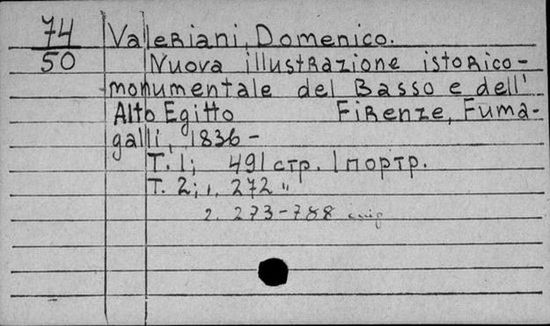 74 Valeriani, Domenico.
50 Nuova illustrazione istorico-
monumentale del Basso e dell'
Alto Egitto Firenze, Fuma-
galli, 1836 -
T. 1; 491 стр. 1 портр.
T. 2; 1. 272 "
2. 273-788